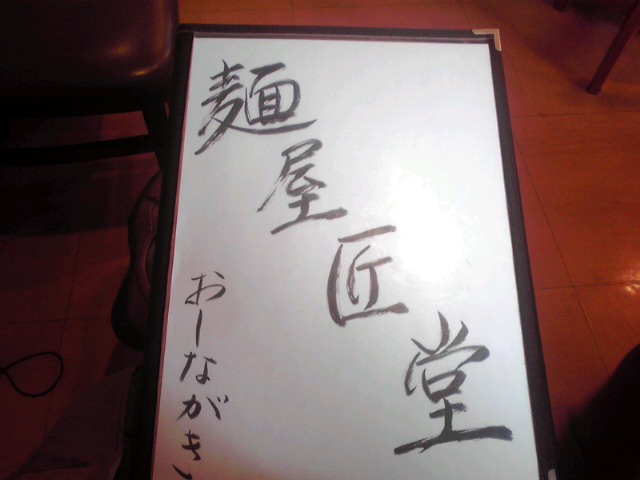 麺屋匠堂
おーながき